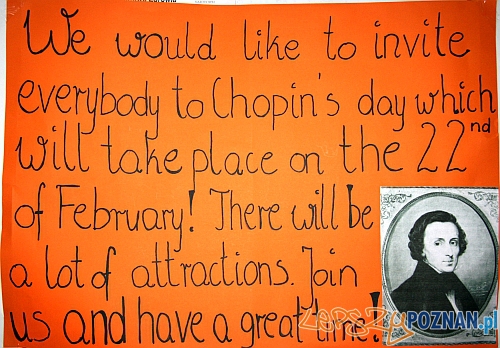 We would like to invite
everybody to Chopin's day which
will take place on the 22nd
of February! There will be
a lot of attractions. Join
us and have a great time!
LepszyPOZNAN.pl